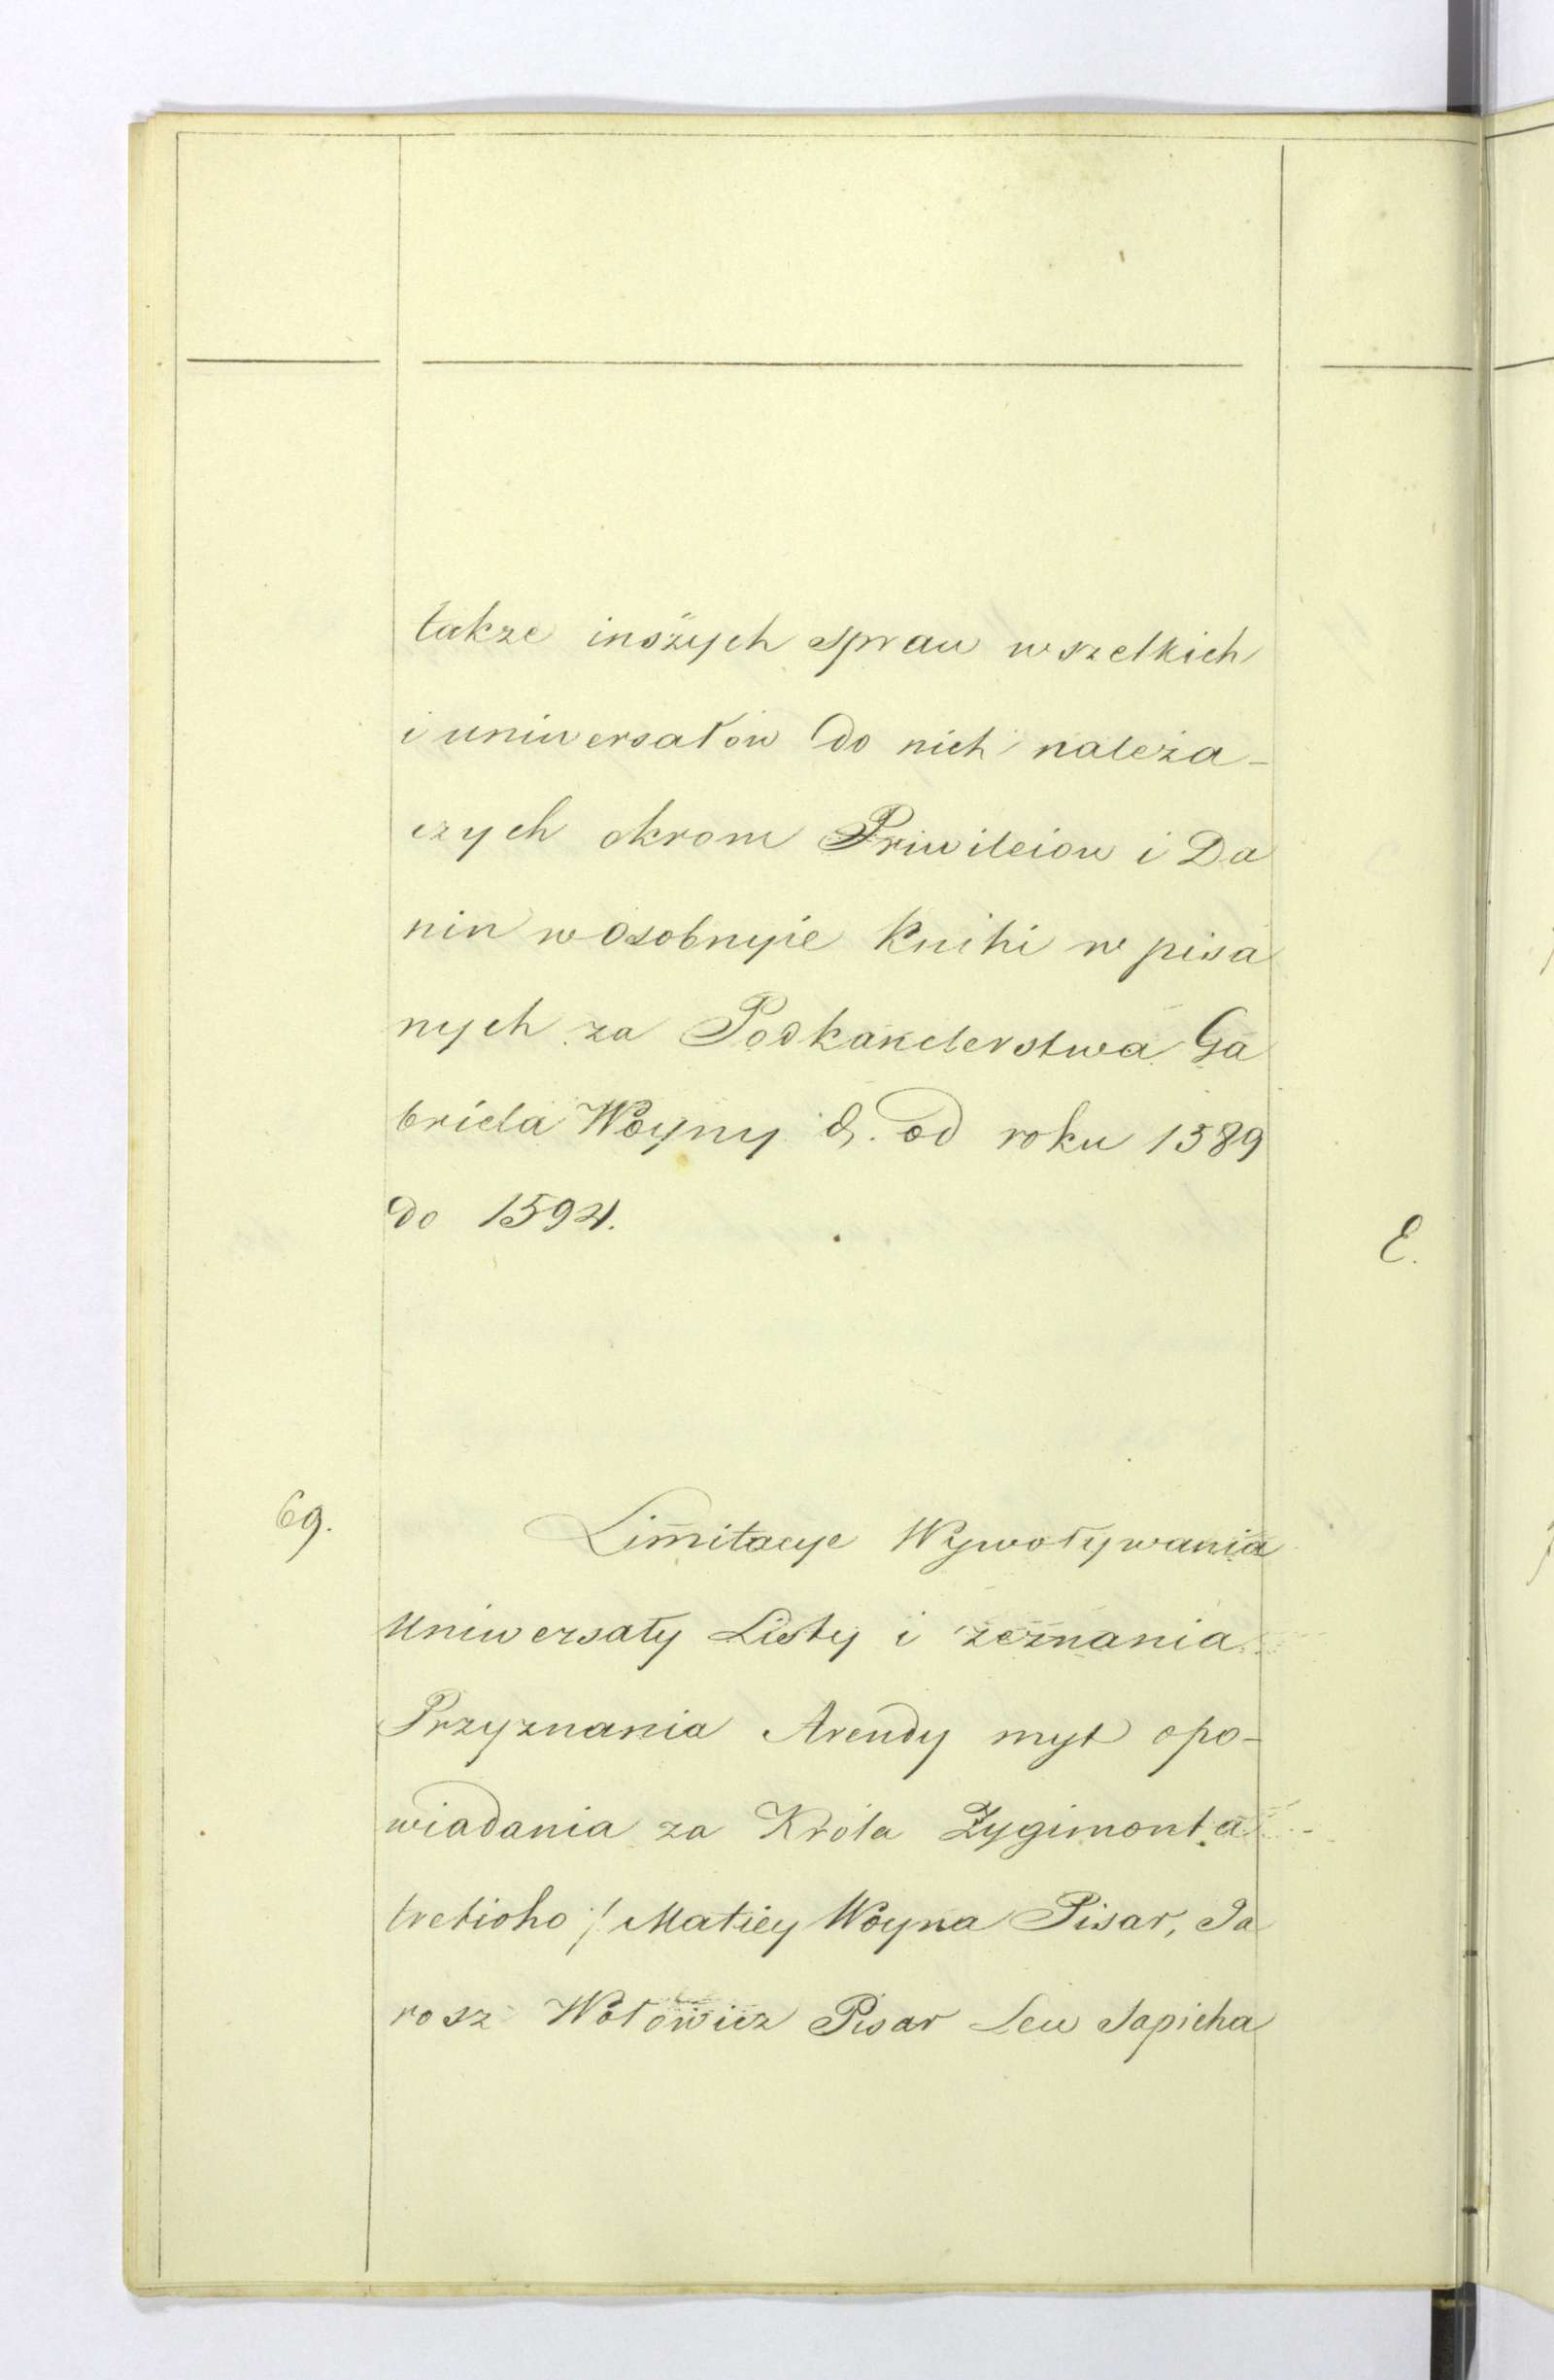 takze inszych spraw wszelkich
i uniwersałow do nich należa-
czych okrom Priwileiow i Da
nin w osobnyie Knihi w pisa
nych za Podkanclerstwa Ga
briela Woyny &. od roku 1589
do 1594.
E.
69.
Limitacye Wywoływania
Uniwersały Listy i zeznania
Przyznania Arendy myt opo-
wiadania za Króla Zygimonta
tretioho / Matiey Woyna Pisar, Ja
rosz Wołowicz Pisar Lew Sapieha